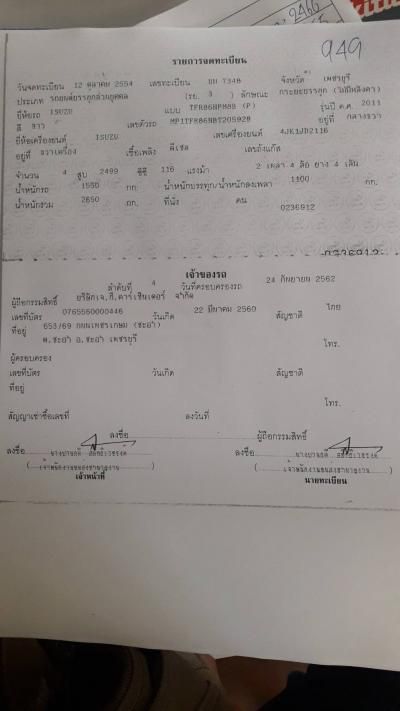 2466
949
รายการจดทะเบียน
วันจดทะเบียน 12 ตุลาคม 2554 เลขทะเบียน บม 7348 จังหวัด เพชรบุรี
ประเภท รถยนต์บรรทุกส่วนบุคคล (รย. 3 ) ลักษณะ กระบะบรรทุก (ไม่มีหลังคา)
ยี่ห้อรถ ISUZU แบบ TFR86HPM8B (P) รุ่นปี ค.ศ. 2011
สี ขาว เลขตัวรถ MP1TFR86HBT205928 อยู่ที่ กลางขวา
ยี่ห้อเครื่องยนต์ ISUZU เลขเครื่องยนต์ 4JK1JD2116
อยู่ที่ ขวาเครื่อง เชื้อเพลิง ดีเซล เลขถังแก๊ส
จำนวน 4 สูบ 2499 ซีซี 116 แรงม้า 2 เพลา 4 ล้อ ยาง 4 เส้น
น้ำหนักรถ 1550 กก. น้ำหนักบรรทุก/น้ำหนักลงเพลา 1100 กก.
น้ำหนักรวม 2650 กก. ที่นั่ง คน
0236912
เจ้าของรถ
ลำดับที่ 4 วันที่ครอบครองรถ 24 กันยายน 2562
ผู้ถือกรรมสิทธิ์ บริษัทเจ.ที.คาร์เซ็นเตอร์ จำกัด
เลขที่บัตร 0765560000446 วันเกิด 22 มีนาคม 2560 สัญชาติ ไทย
ที่อยู่ 653/69 ถนนเพชรเกษม (ชะอำ)
ต.ชะอำ อ.ชะอำ เพชรบุรี โทร.
ผู้ครอบครอง
เลขที่บัตร วันเกิด สัญชาติ
ที่อยู่
โทร.
สัญญาเช่าซื้อเลขที่ ลงวันที่
ลงชื่อ ผู้ถือกรรมสิทธิ์
ลงชื่อ ลงชื่อ
(เจ้าพนักงานขนส่งชำนาญงาน) (เจ้าพนักงานขนส่งชำนาญงาน)
เจ้าหน้าที่ นายทะเบียน